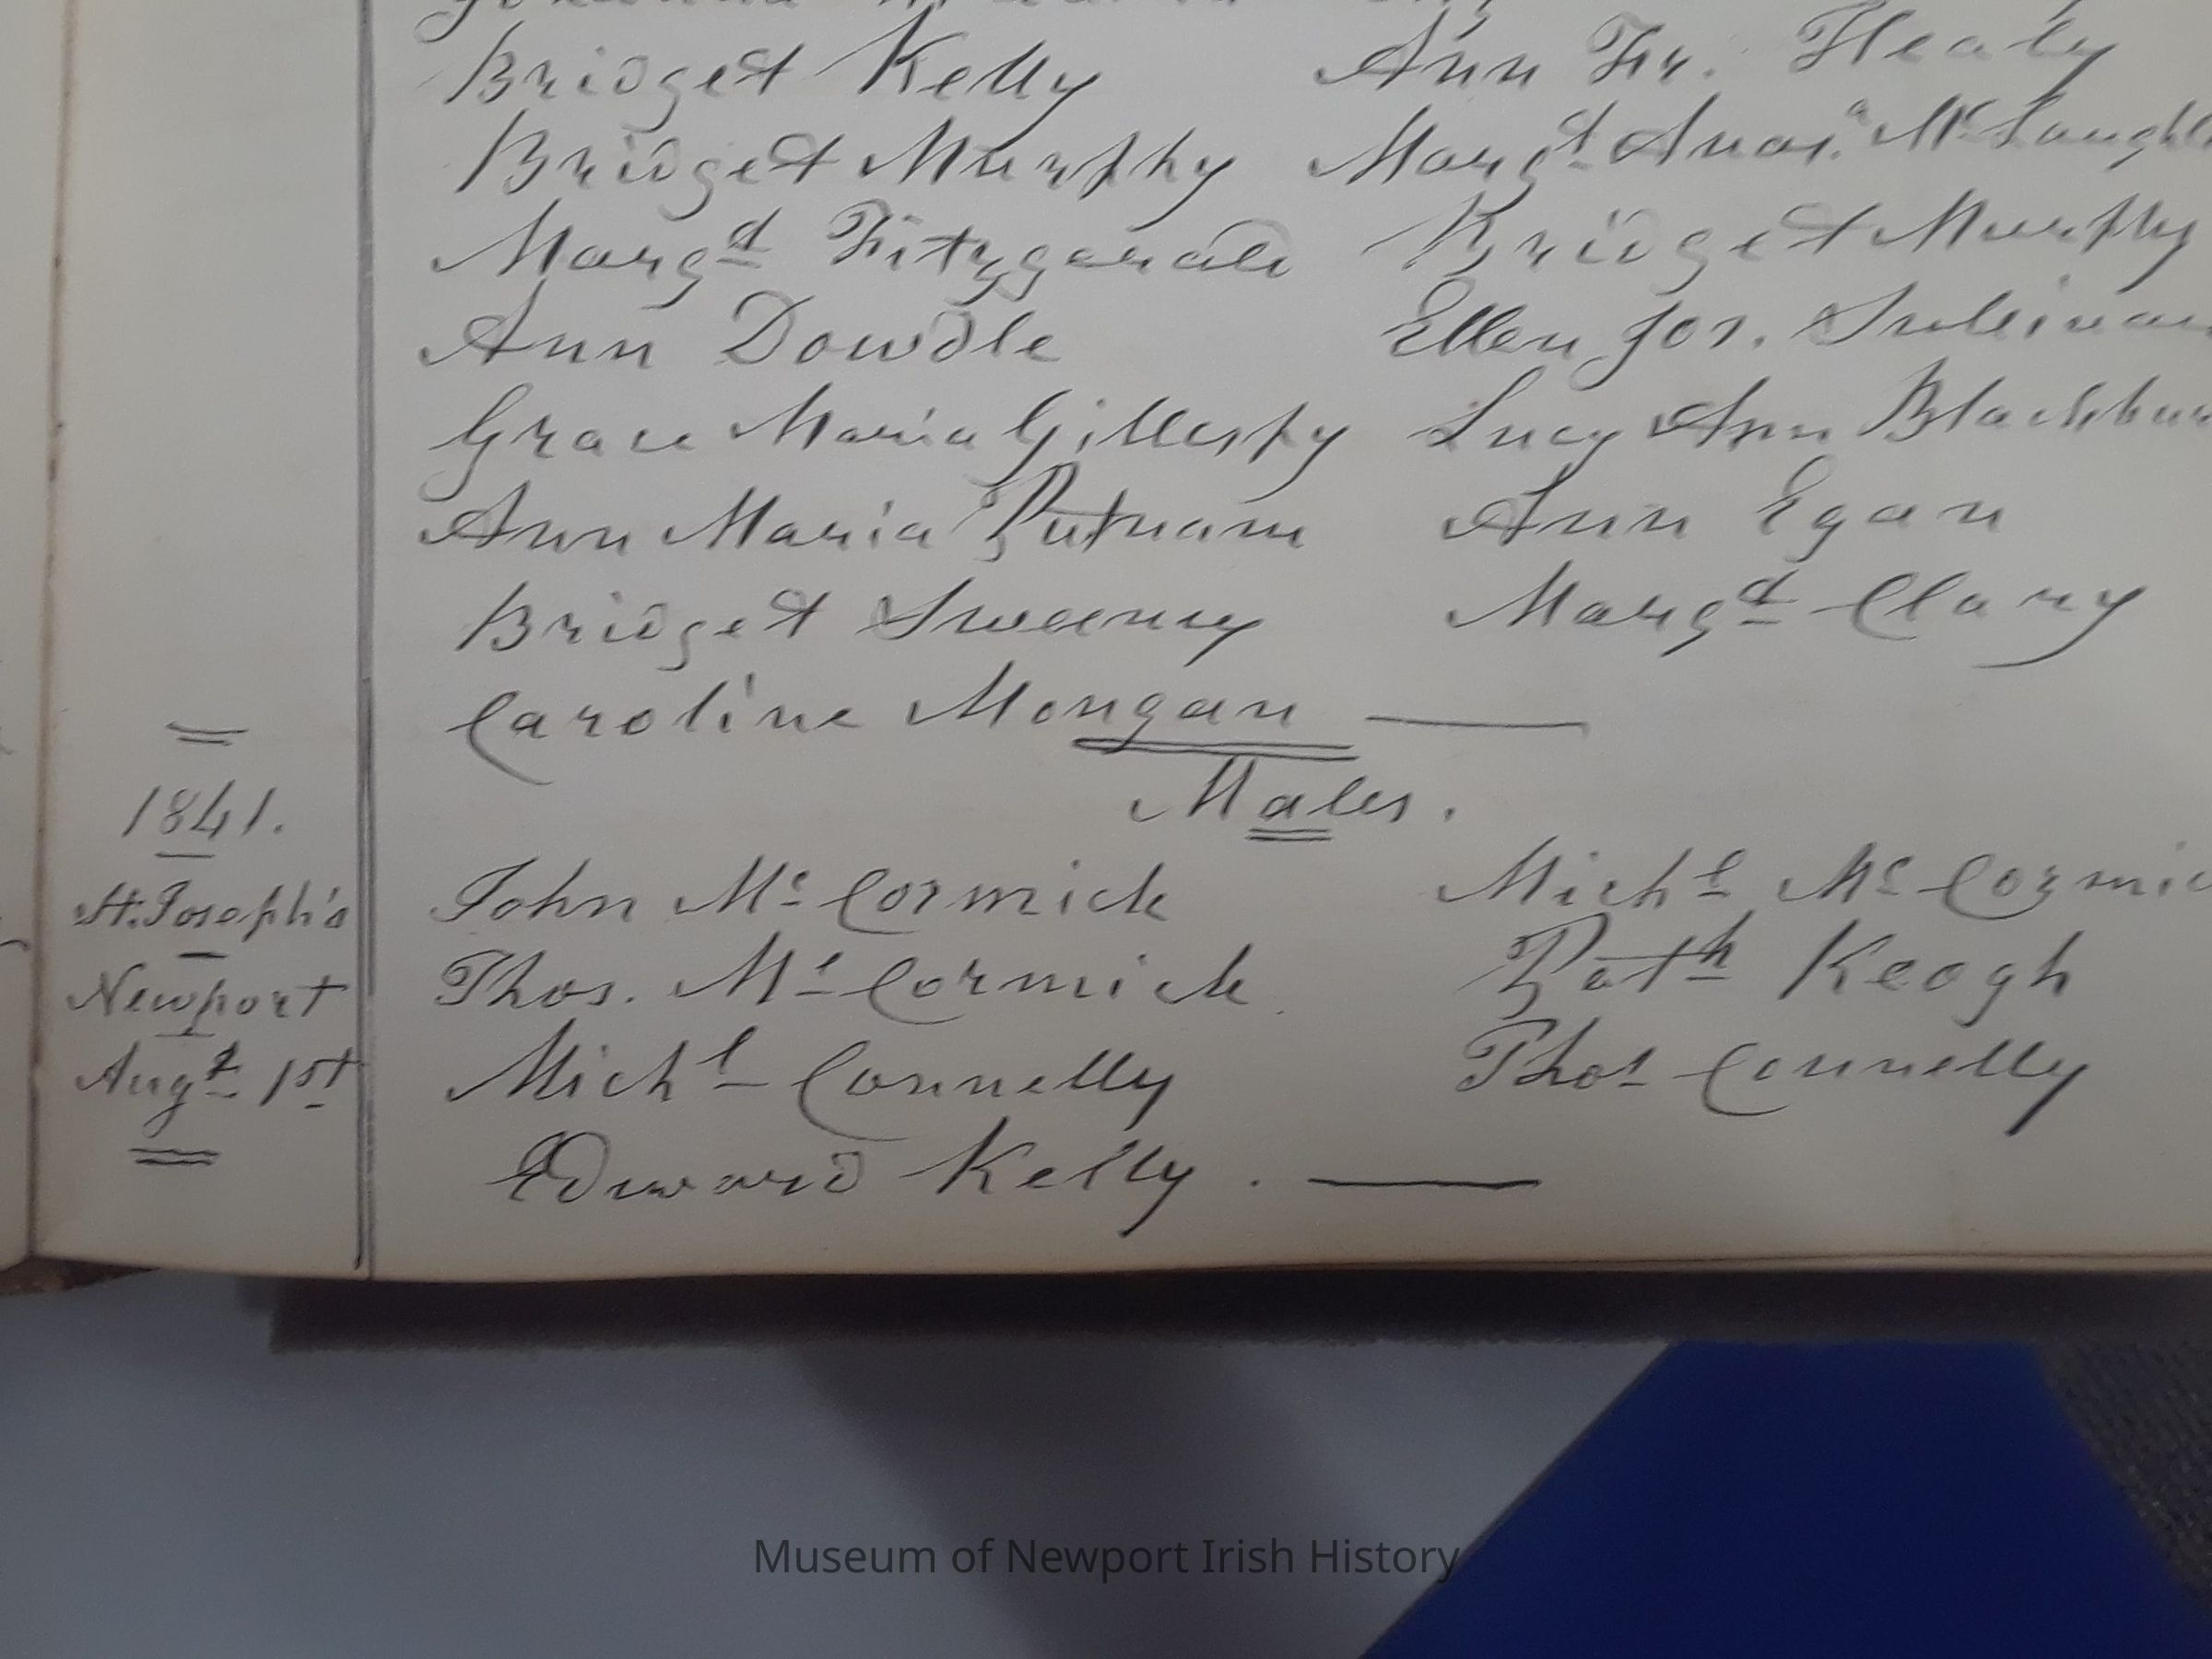 Bridget Kelly Ann Fr. Healy
Bridget Murphy Margt Anas.a Mc
Margt Fitzgerald Bridget Murphy
Ann Dowdle Ellen Jos. Sullivan
Grace Maria Gillespy Lucy Ann
Ann Maria Putnam Ann Egan
Bridget Sweeney Margt Clary
Caroline Mongan
Males.
1841.
St. Joseph's
Newport
Augt 1st
John Mc Cormick Michl Mc
Thos. Mc Cormick Patk Keogh
Michl Connelly Thos Connelly
Edward Kelly.
Museum of Newport Irish History